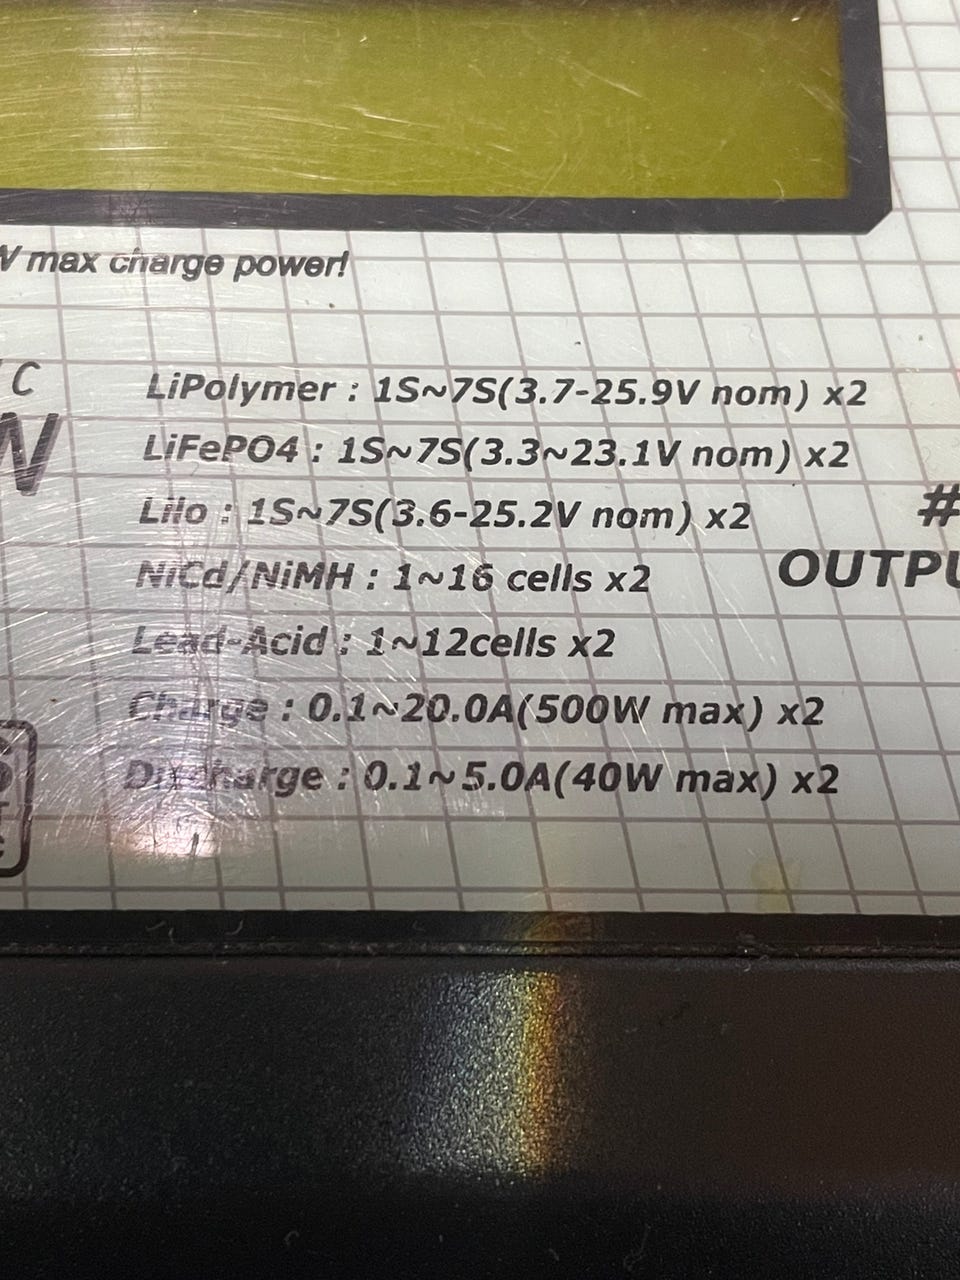 V max charge power!
C
W
LiPolymer : 1S~7S(3.7-25.9V nom) x2
LiFePO4 : 1S~7S(3.3~23.1V nom) x2
LiIo : 1S~7S(3.6-25.2V nom) x2
#
NiCd/NiMH : 1~16 cells x2
OUTPU
Lead-Acid : 1~12cells x2
Charge : 0.1~20.0A(500W max) x2
Discharge : 0.1~5.0A(40W max) x2